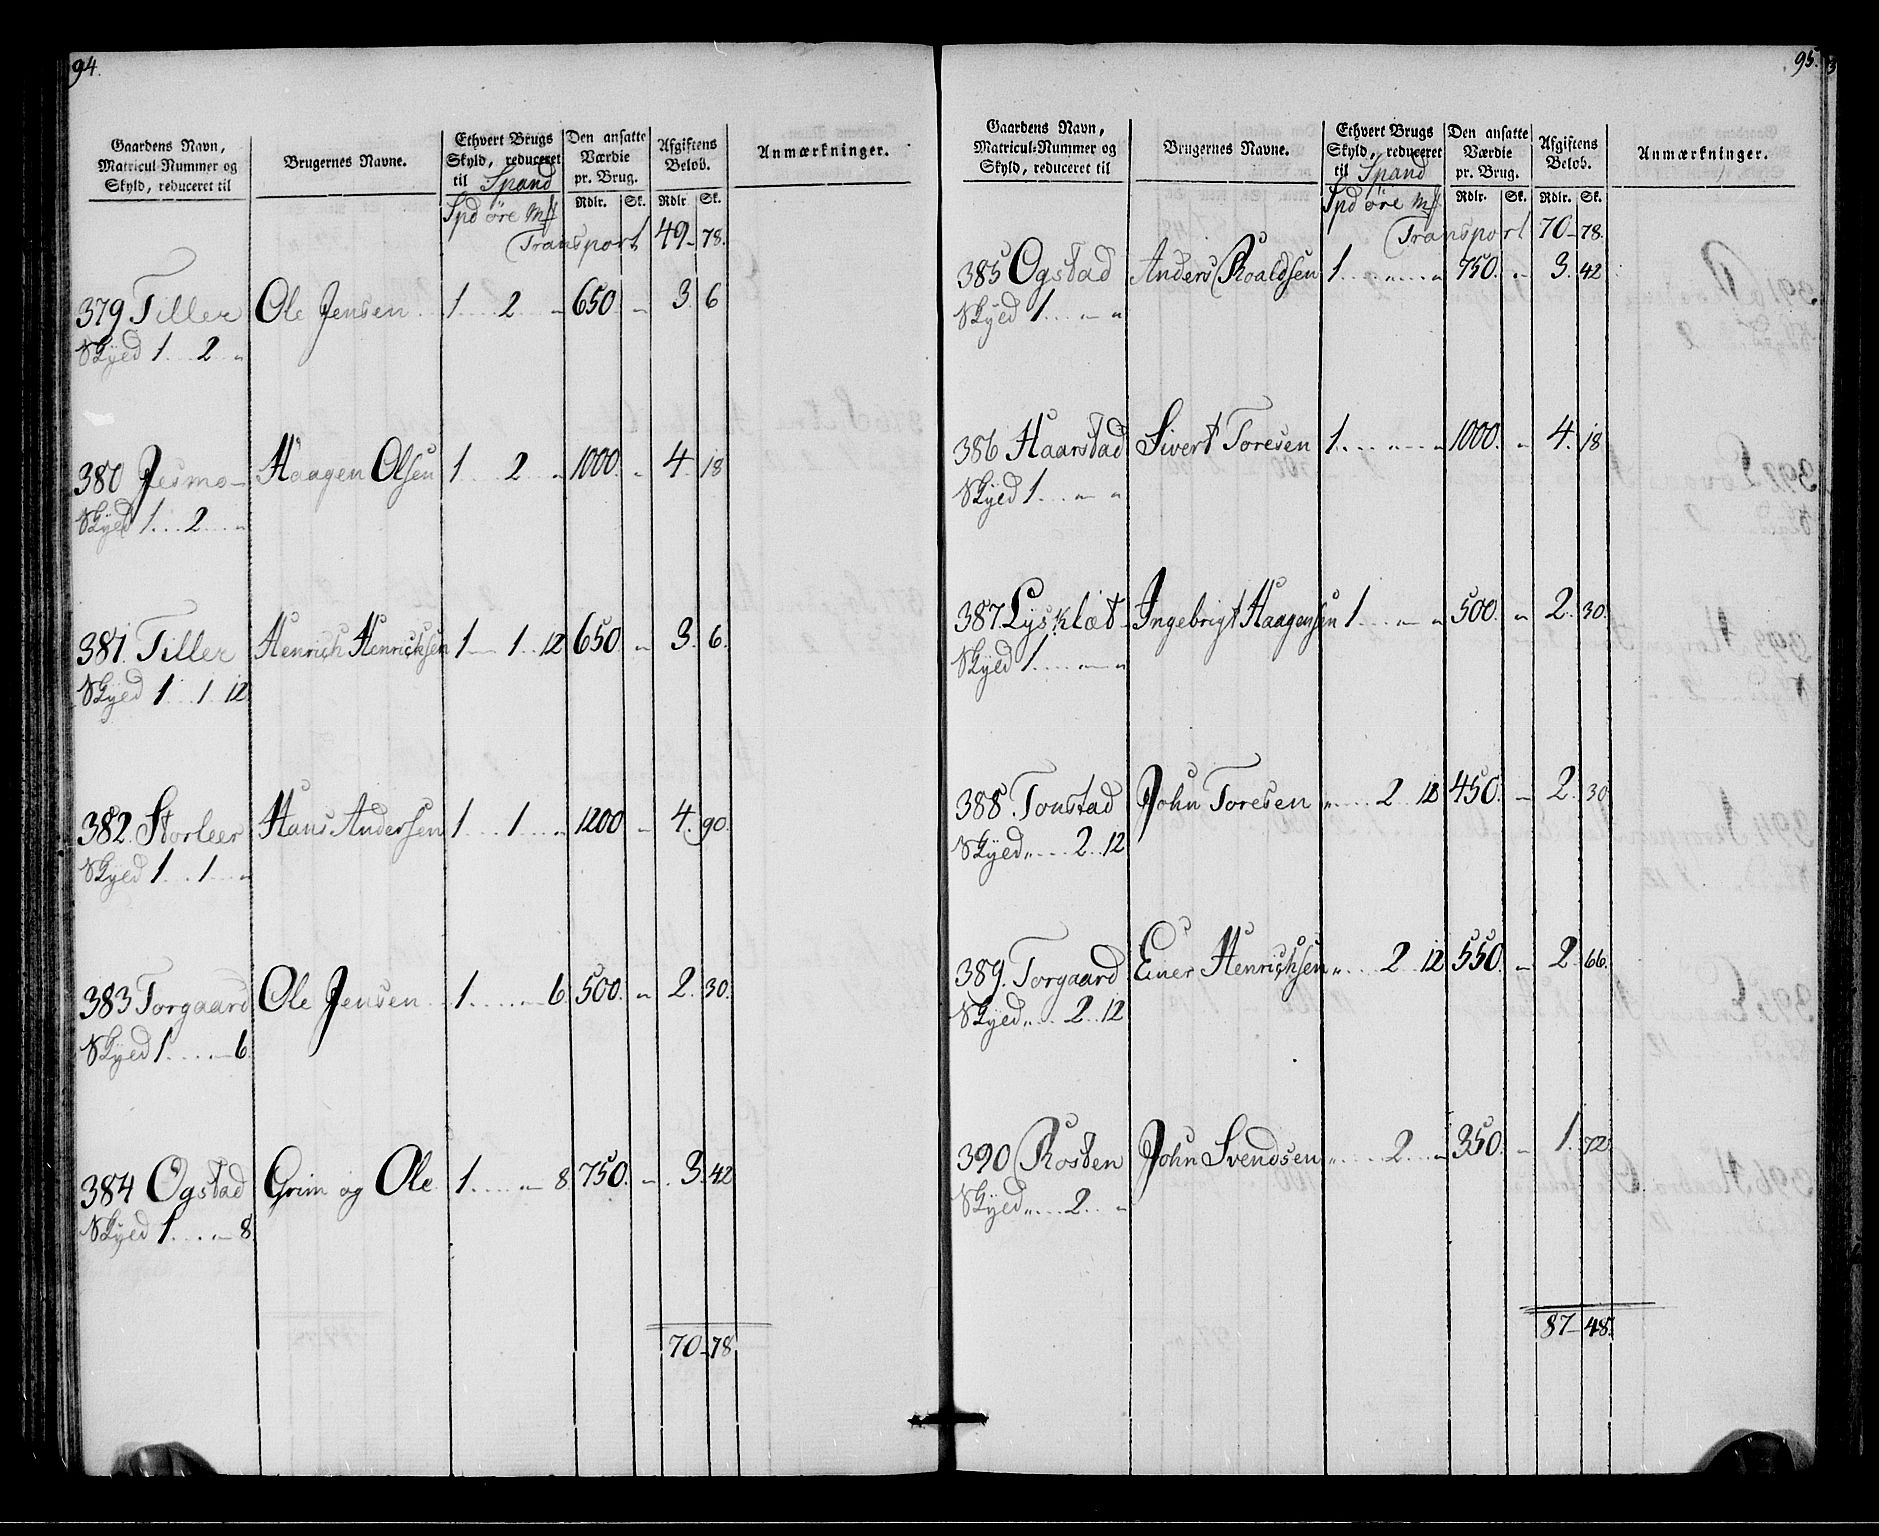 94.
Gaardens Navn, Matricul-Nummer og Skyld, reduceret til
Brugernes Navne.
Ethvert Brugs Skyld, reduceret til Spand
Den ansatte Værdie pr. Brug.
Afgiftens Beløb.
Anmærkninger.
Spd öre Mk Rdlr. Sk. Rdlr Sk.
Transport 49 78.
379 Tiller Ole Jensen 1 2 " 650 " 3 6
Skyld 1 2 "
380 Jesmo Haagen Olsen 1 2 " 1000 " 4 18
Skyld 1 2 "
381. Tiller Henrich Henrichsen 1 1 12 650 " 3. 6.
Skyld 1 1 12
382. Storleer Hans Andersen 1 1 " 1200 " 4. 90.
Skyld 1 1 "
383 Torgaard Ole Jensen 1 " 6 500. " 2. 30.
Skyld 1 " 6.
384 Ogstad Grim og Ole 1 " 8 750. " 3. 42
Skyld 1 " 8
70 78
95.
Gaardens Navn, Matricul-Nummer og Skyld, reduceret til
Brugernes Navne.
Ethvert Brugs Skyld, reduceret til Spand
Den ansatte Værdie pr. Brug.
Afgiftens Beløb.
Anmærkninger.
Spd öre Mk Rdlr. Sk. Rdlr. Sk.
Transport 70 78.
385 Ogstad Anders Roaldsen 1 " " 750. " 3. 42
Skyld 1 " "
386 Haarstad Sivert Toresen 1 " " 1000. " 4. 18
Skyld 1 " "
387. Lysklæt Ingebrigt Haagensen 1 " " 500. " 2. 30.
Skyld 1 " "
388. Tonstad John Toresen " 2 12 450. " 2. 30
Skyld " 2 12
389. Torgaard Einer Henrichsen " 2 12 550. " 2. 66.
Skyld " 2 12
390 Rosten John Svendsen " 2 " 350. " 1. 72
Skyld " 2 "
87 48.